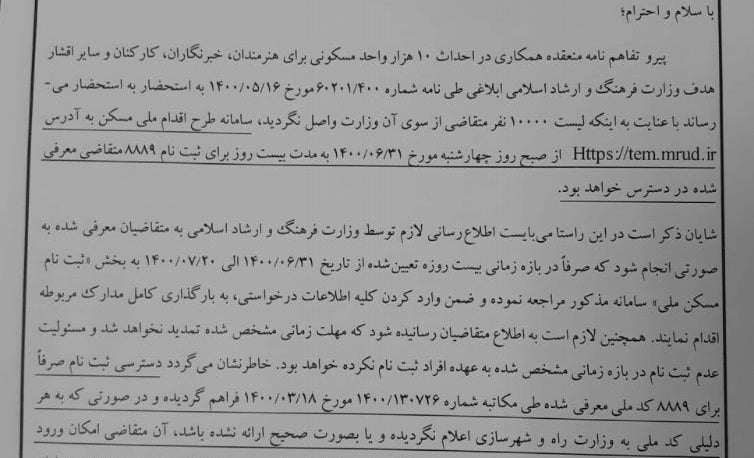 با سلام و احترام؛
پیرو تفاهم نامه منعقده همکاری در احداث ۱۰ هزار واحد مسکونی برای هنرمندان، خبرنگاران، کارکنان و سایر اقشار
هدف وزارت فرهنگ و ارشاد اسلامی ابلاغی طی نامه شماره ۶۰۲۰۱/۴۰۰ مورخ ۱۴۰۰/۰۵/۱۶ به استحضار به استحضار می-
رساند با عنایت به اینکه لیست ۱۰۰۰۰ نفر متقاضی از سوی آن وزارت واصل نگردید، سامانه طرح اقدام ملی مسکن به آدرس
Https://tem.mrud.ir از صبح روز چهارشنبه مورخ ۱۴۰۰/۰۶/۳۱ به مدت بیست روز برای ثبت نام ۸۸۸۹ متقاضی معرفی
شده در دسترس خواهد بود.
شایان ذکر است در این راستا می‌بایست اطلاع‌رسانی لازم توسط وزارت فرهنگ و ارشاد اسلامی به متقاضیان معرفی شده به
صورتی انجام شود که صرفاً در بازه زمانی بیست روزه تعیین‌شده از تاریخ ۱۴۰۰/۰۶/۳۱ الی ۱۴۰۰/۰۷/۲۰ به بخش «ثبت نام
مسکن ملی» سامانه مذکور مراجعه نموده و ضمن وارد کردن کلیه اطلاعات درخواستی، به بارگذاری کامل مدارک مربوطه
اقدام نمایند. همچنین لازم است به اطلاع متقاضیان رسانیده شود که مهلت زمانی مشخص شده تمدید نخواهد شد و مسئولیت
عدم ثبت نام در بازه زمانی مشخص شده به عهده افراد ثبت نام نکرده خواهد بود. خاطرنشان می‌گردد دسترسی ثبت نام صرفاً
برای ۸۸۸۹ کد ملی معرفی شده طی مکاتبه شماره ۱۴۰۰/۱۳۰۷۲۶ مورخ ۱۴۰۰/۰۳/۱۸ فراهم گردیده و در صورتی که به هر
دلیلی کد ملی به وزارت راه و شهرسازی اعلام نگردیده و یا بصورت صحیح ارائه نشده باشد، آن متقاضی امکان ورود